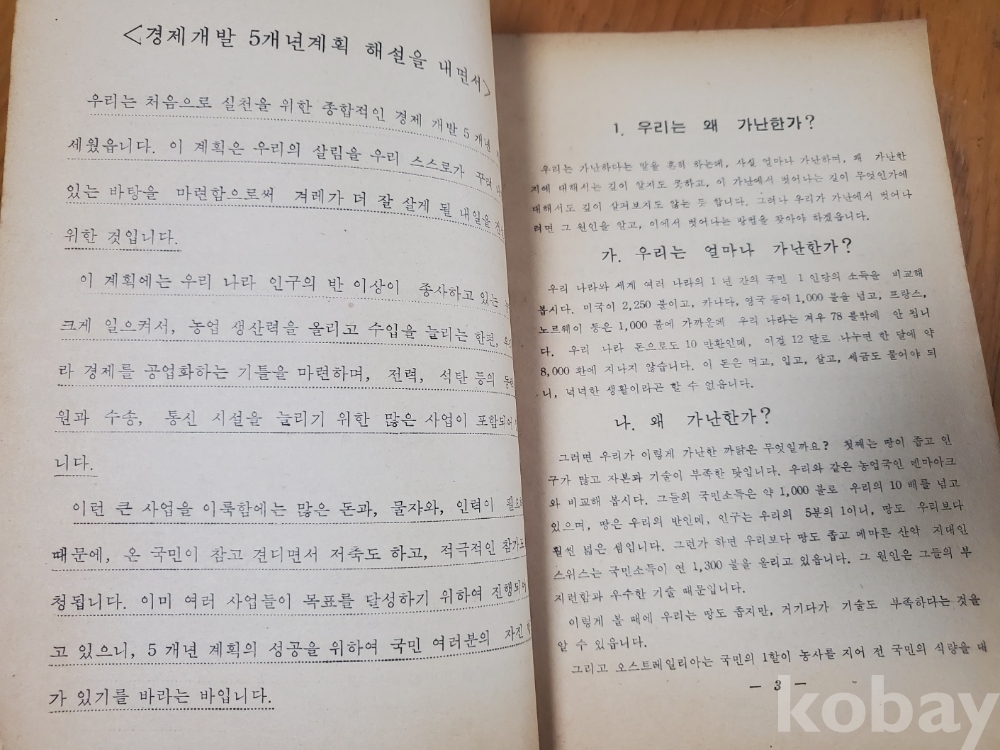 <경제개발 5개년계획 해설을 내면서>
우리는 처음으로 실천을 위한 종합적인 경제 개발 5 개년
세웠읍니다. 이 계획은 우리의 살림을 우리 스스로가 꾸려
있는 바탕을 마련함으로써 겨레가 더 잘 살게 될 내일을
위한 것입니다.
이 계획에는 우리 나라 인구의 반 이상이 종사하고 있는
크게 일으켜서, 농업 생산력을 올리고 수입을 늘리는 한편,
라 경제를 공업화하는 기틀을 마련하며, 전력, 석탄 등의
원과 수송, 통신 시설을 늘리기 위한 많은 사업이 포함되어
니다.
이런 큰 사업을 이룩함에는 많은 돈과, 물자와, 인력이
때문에, 온 국민이 참고 견디면서 저축도 하고, 적극적인 참가
청됩니다. 이미 여러 사업들이 목표를 달성하기 위하여 진행되어
고 있으니, 5 개년 계획의 성공을 위하여 국민 여러분의 자진
가 있기를 바라는 바입니다.
1. 우리는 왜 가난한가?
우리는 가난하다는 말을 흔히 하는데, 사실 얼마나 가난하며, 왜 가난한
지에 대해서는 깊이 알지도 못하고, 이 가난에서 벗어나는 길이 무엇인가에
대해서도 깊이 살펴보지도 않는 듯 합니다. 그러나 우리가 가난에서 벗어나
려면 그 원인을 알고, 이에서 벗어나는 방법을 찾아야 하겠읍니다.
가. 우리는 얼마나 가난한가?
우리 나라와 세계 여러 나라의 1 년 간의 국민 1 인당의 소득을 비교해
봅시다. 미국이 2,250 불이고, 카나다, 영국 등이 1,000 불을 넘고, 프랑스,
노르웨이 등은 1,000 불에 가까운데 우리 나라는 겨우 78 불밖에 안 됩니
다. 우리 나라 돈으로도 10 만환인데, 이걸 12 달로 나누면 한 달에 약
8,000 환에 지나지 않습니다. 이 돈은 먹고, 입고, 살고, 세금도 물어야 되
니, 넉넉한 생활이라곤 할 수 없읍니다.
나. 왜 가난한가?
그러면 우리가 이렇게 가난한 까닭은 무엇일까요? 첫째는 땅이 좁고 인
구가 많고 자본과 기술이 부족한 탓입니다. 우리와 같은 농업국인 덴마아크
와 비교해 봅시다. 그들의 국민소득은 약 1,000 불로 우리의 10 배를 넘고
있으며, 땅은 우리의 반인데, 인구는 우리의 5분의 1이니, 땅도 우리보다
훨씬 넓은 셈입니다. 그런가 하면 우리보다 땅도 좁고 메마른 산악 지대인
스위스는 국민소득이 연 1,300 불을 올리고 있읍니다. 그 원인은 그들의 부
지런함과 우수한 기술 때문입니다.
이렇게 볼 때에 우리는 땅도 좁지만, 거기다가 기술도 부족하다는 것을
알 수 있읍니다.
그리고 오스트레일리아는 국민의 1할이 농사를 지어 전 국민의 식량을 대
— 3 —
kobay